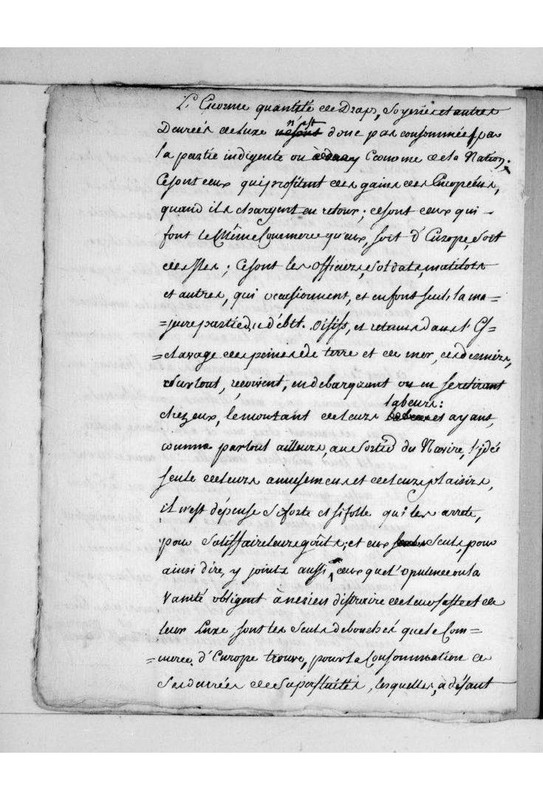 L'Enorme quantité de Draps, Soyeries et autres
Denrées de Luxe n'est donc pas consommée par
la partie indigente ou Econome de la Nation;
Ce sont ceux qui profitent des gains des Européens,
quand ils chargent en retour; ce sont ceux qui
font le Même Commerce qu'eux, soit d'Europe, soit
des Isles; Ce sont les Officiers, Soldats matelots
et autres, qui occasionnent, et en font seuls la ma=
=jeure partie de débit. Oisifs, et retenus dans l'Es=
=clavage des peines de terre et de mer, ces derniers,
Surtout, reçoivent, en débarquant ou en se retirant
chez eux, le montant de leurs labeurs: et ayant,
comme partout ailleurs, au Sortir du Navire l'idée
seule de leurs amusements et de leurs plaisirs,
il n'est dépense si forte et si folle qui les arrete,
pour Satisfaire leurs goûts; et eux Seuls, pour
ainsi dire, y joints aussi ceux que l'opulence ou la
Vanité obligent à ne rien distraire de leur faste et de
leur Luxe, sont les Seuls débouchés que le Com=
=merce d'Europe trouve, pour la Consommation de
Ses denrées de Superfluités, lesquelles, à défaut